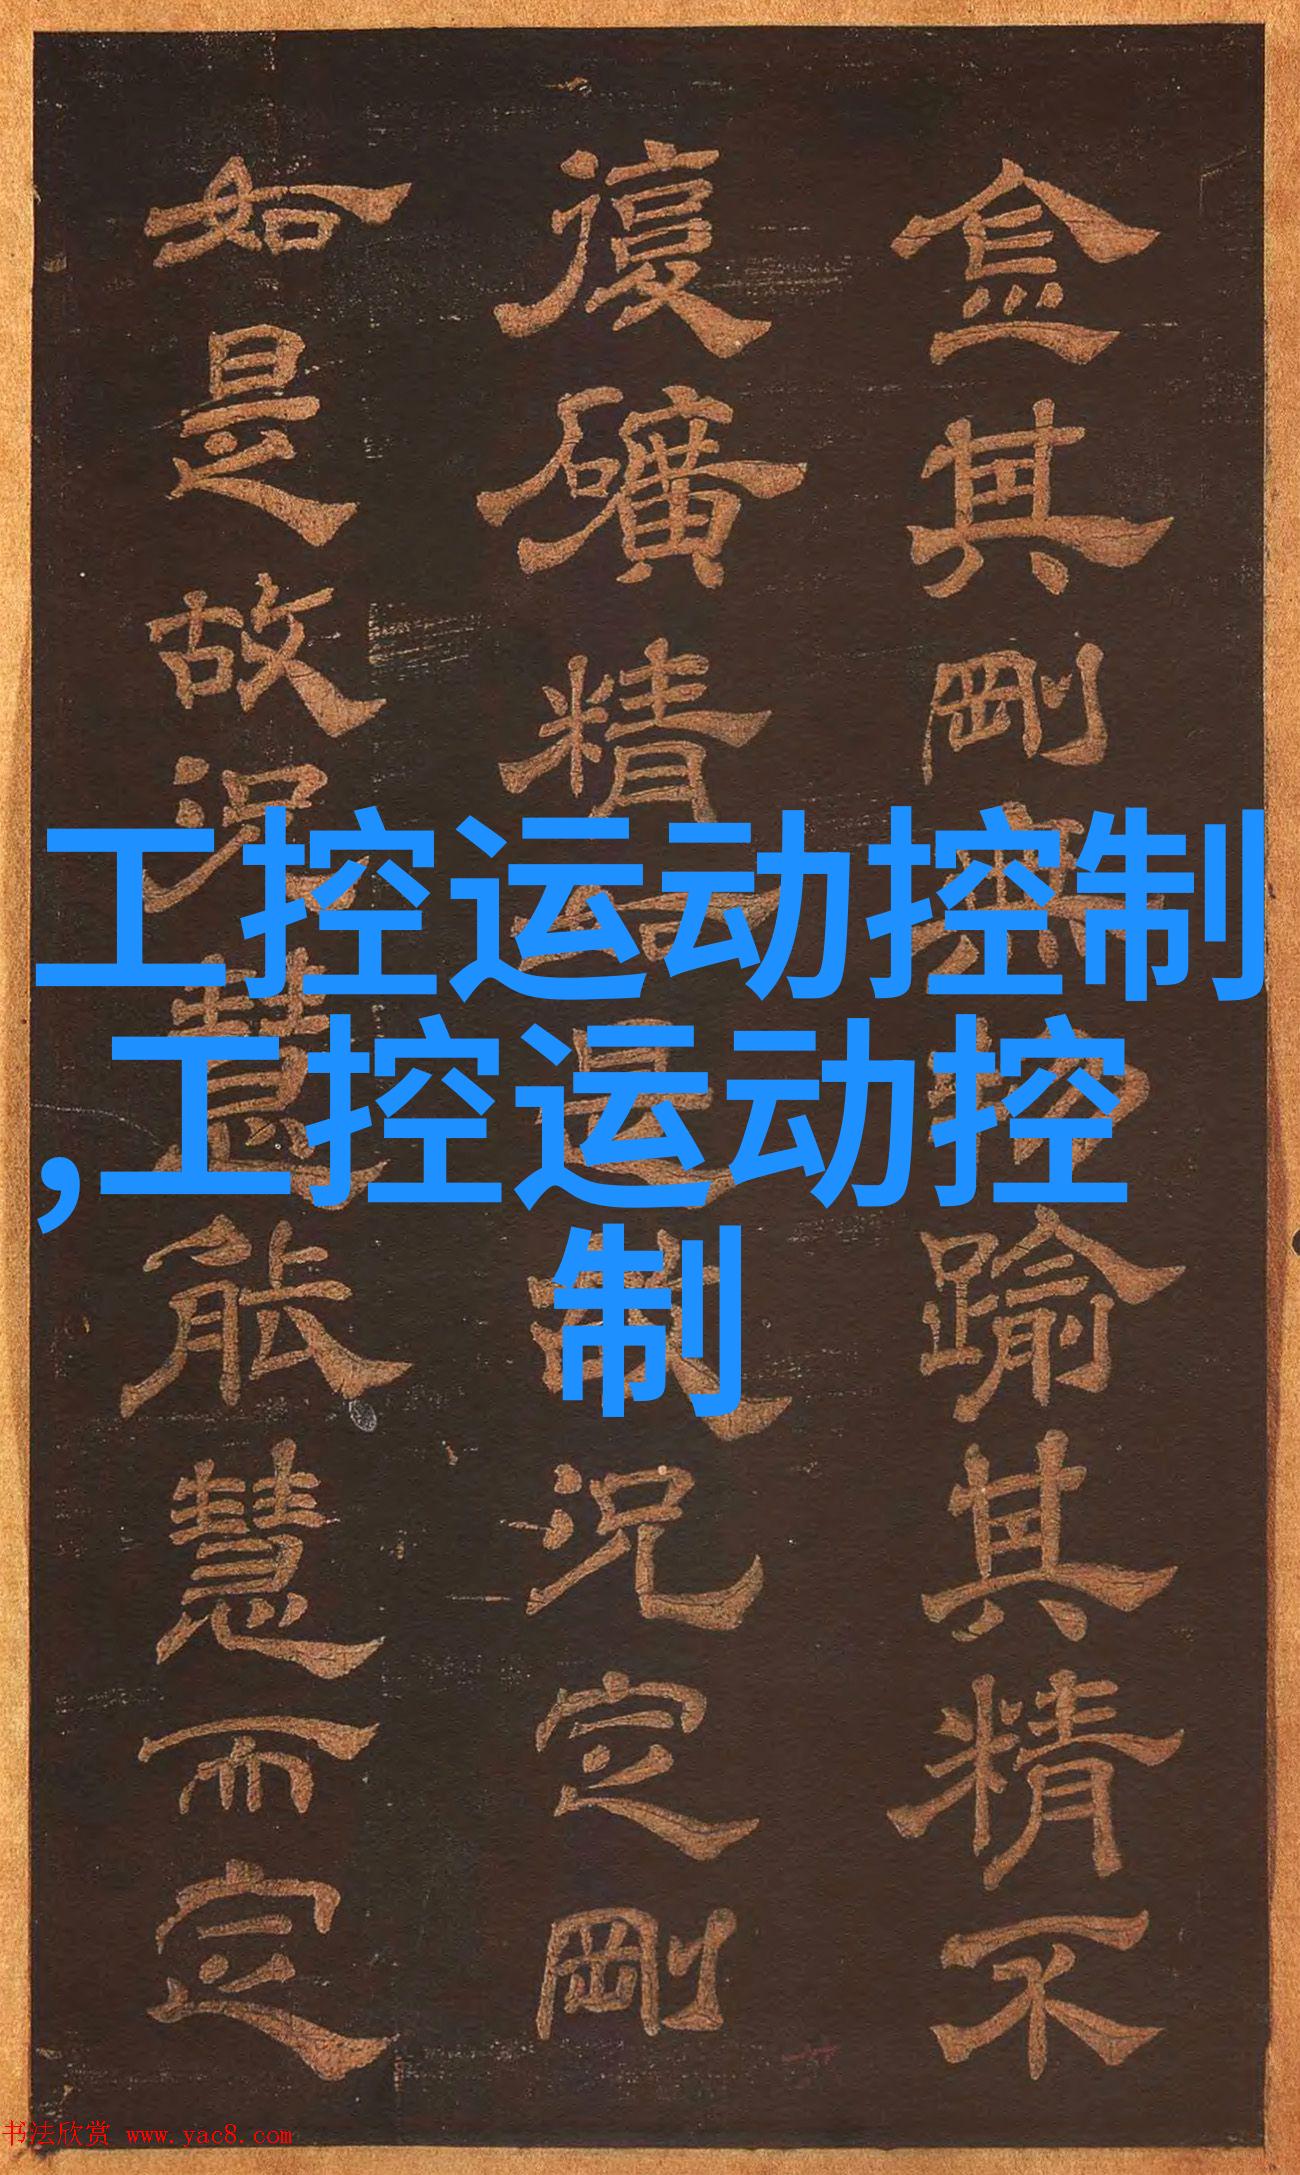 金其剛無踰其精不
復礦精是故況定剛
如是故況慧能慧而定
工控运动控制
,工控运动控
制
书法欣赏 www.yac8.com